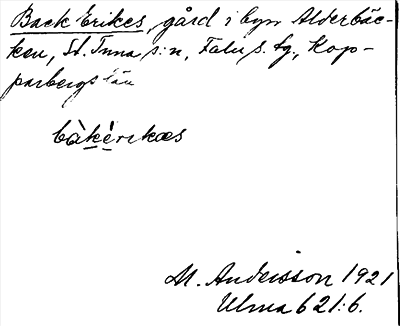 Back Erikes, gård i byn Alderbäc-
ken, St. Tuna s:n, Falu s. fg., Kop-
parbergs län
bàkérikæs
M. Andersson 1921
Ulma 621:6.